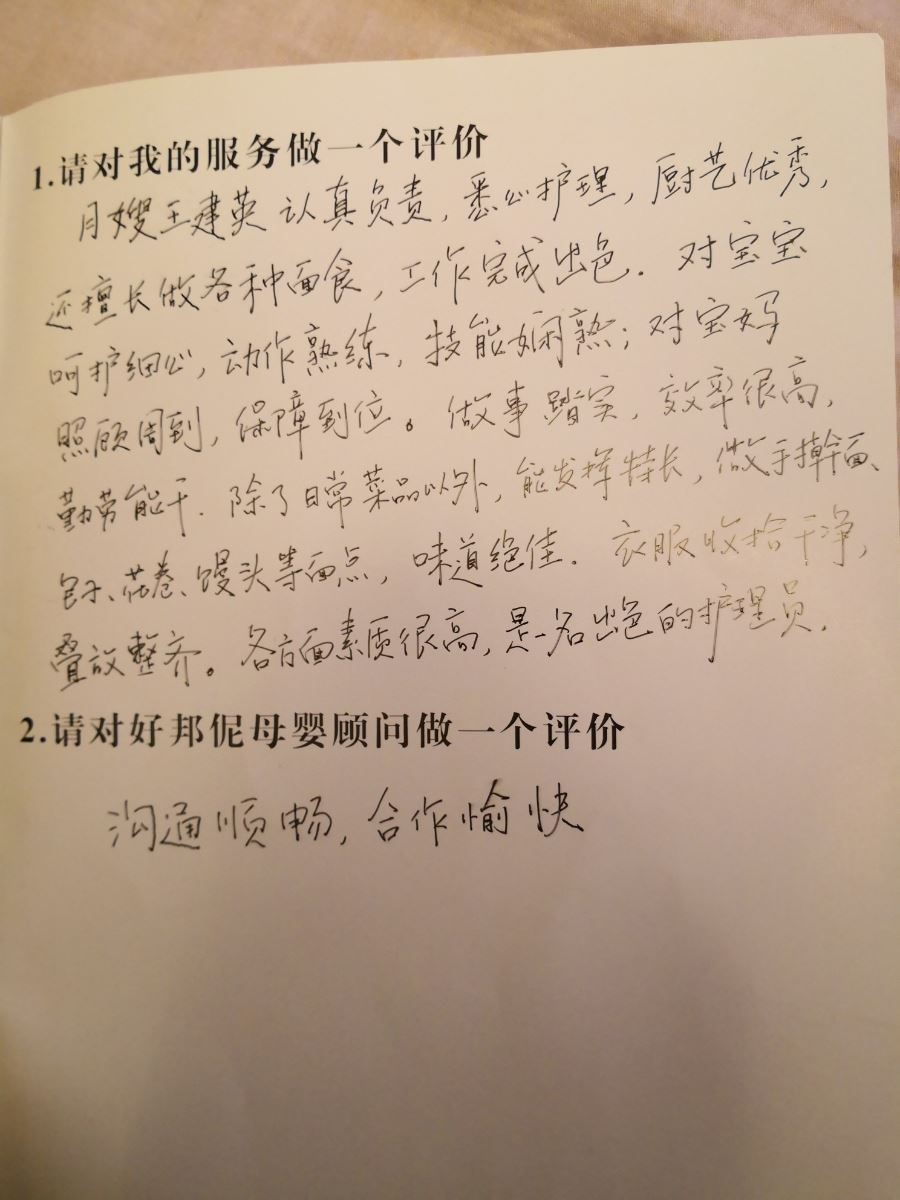 1.请对我的服务做一个评价
月嫂王建英认真负责，悉心护理，厨艺优秀，
还擅长做各种面食，工作完成出色．对宝宝
呵护细心，动作熟练，技能娴熟；对宝妈
照顾周到，保障到位。做事踏实，效率很高，
勤劳能干．除了日常菜品以外，能发挥特长，做手擀面、
包子、花卷、馒头等面点，味道绝佳．衣服收拾干净，
叠放整齐。各方面素质很高，是一名出色的护理员．
2.请对好邦伲母婴顾问做一个评价
沟通顺畅，合作愉快